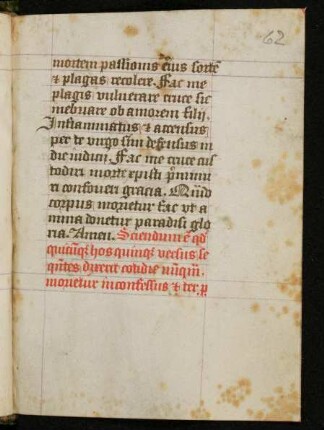 62
mortem passionis eius sorte
& plagas recolere. Fac me
plagis vulnerare cruce hac
inebriare ob amorem filij.
Inflammatus & accensus
per te virgo sim defensus in
die iudicij. Fac me cruce cus
todiri morte cristi p̄muni
ri confoueri gracia. Quād
corpus morietur fac vt a
nima donetur paradisi glo
ria. Amen. Sciendum ē qđ
quicūqȝ hos quinqȝ versus se
qūtes dixerit cotidie nūqm̄
morietur inconfessus & ter p